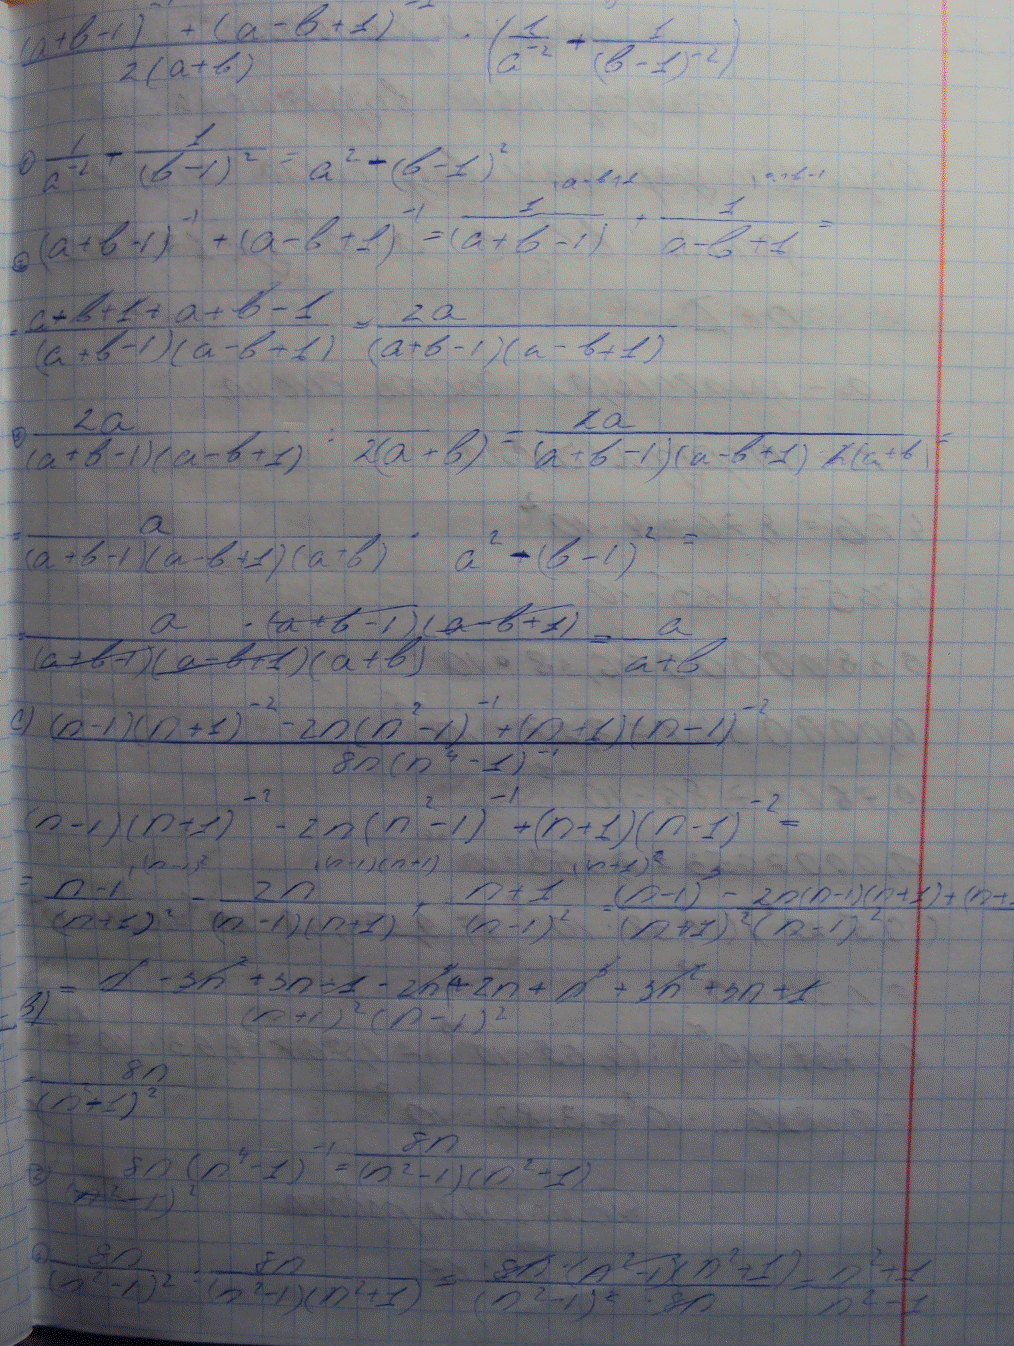 (a+b-1)⁻¹ + (a-b+1)⁻¹ / 2(a+b) · (1/a⁻² - 1/(b-1)⁻²)
1) 1/a⁻² - 1/(b-1)² = a² - (b-1)²
2) (a+b-1)⁻¹ + (a-b+1)⁻¹ = 1/(a+b-1) + 1/(a-b+1) =
= a+b+1+a+b-1 / (a+b-1)(a-b+1) = 2a / (a+b-1)(a-b+1)
3) 2a / (a+b-1)(a-b+1) : 2(a+b) = 2a / (a+b-1)(a-b+1)·2(a+b) =
= a / (a+b-1)(a-b+1)(a+b) · a² - (b-1)² =
= a·(a+b-1)(a-b+1) / (a+b-1)(a-b+1)(a+b) = a / a+b
c) (n-1)(n+1)⁻² - 2n(n²-1)⁻¹ + (n+1)(n-1)⁻² / 8n(n⁴-1)⁻¹
(n-1)(n+1)⁻² - 2n(n²-1)⁻¹ + (n+1)(n-1)⁻² =
= n-1 / (n+1)² - 2n / (n-1)(n+1) + n+1 / (n-1)² = (n-1)³ - 2n(n-1)(n+1) + (n+1 / (n+1)²(n-1)²
= n³ - 3n² + 3n - 1 - 2n³ + 2n + n³ + 3n² + 3n + 1 / (n+1)²(n-1)²
= 8n / (n²-1)²
2) 8n(n⁴-1)⁻¹ = 8n / (n²-1)(n²+1)
(n²-1)²
8n / (n²-1)² : 8n / (n²-1)(n²+1) = 8n·(n²-1)(n²+1) / (n²-1)²·8n = n²+1 / n²-1